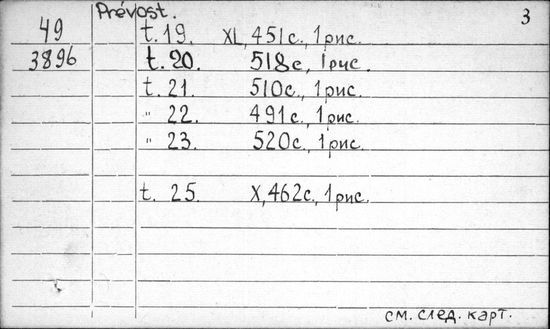 Prévost. 3
49 t. 19. XL, 451с., 1рис.
3896 t. 20. 518с., 1рис.
t. 21. 510с., 1рис.
" 22. 491с., 1рис.
" 23. 520с., 1рис.
t. 25. X, 462с., 1рис.
см. след. карт.